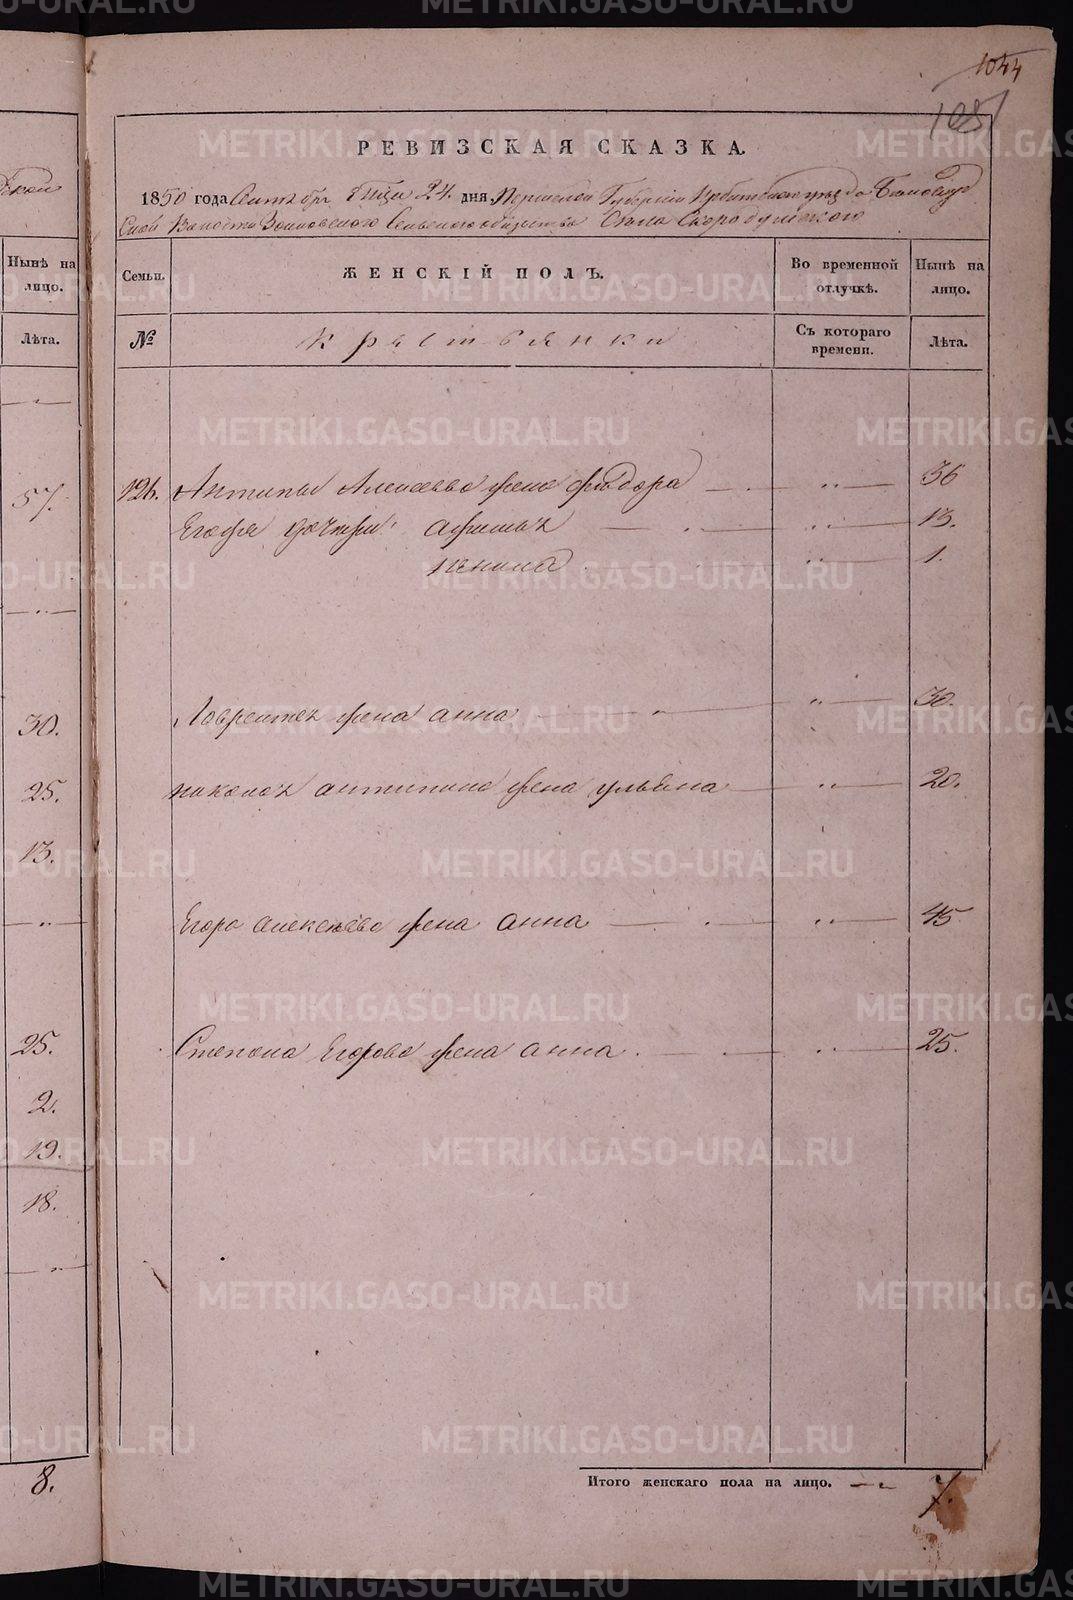 1044
108
РЕВИЗСКАЯ СКАЗКА.
1850 года Сентября Мца 24. дня Пермской Губернии Ирбитскаго уезда
Волости Зайковскаго Сельскаго общества Села Скородумскаго
Нынѣ на лицо.
Семьи.
ЖЕНСКІЙ ПОЛЪ.
Во временной отлучкѣ.
Нынѣ на лицо.
Лѣта.
№
крестьянки
Съ котораго времени.
Лѣта.
57.
126. Антипы Алексеева жена Федора 36
Егоже дочери 13.
1.
30.
Лаврентея жена анна 30.
25.
николая антипина жена ульяна 20.
13.
Егора алексеева жена анна 45
25.
Степана Егорова жена анна 25.
2.
19.
18.
8.
Итого женскаго пола на лицо. 7.
METRIKI.GASO-URAL.RU